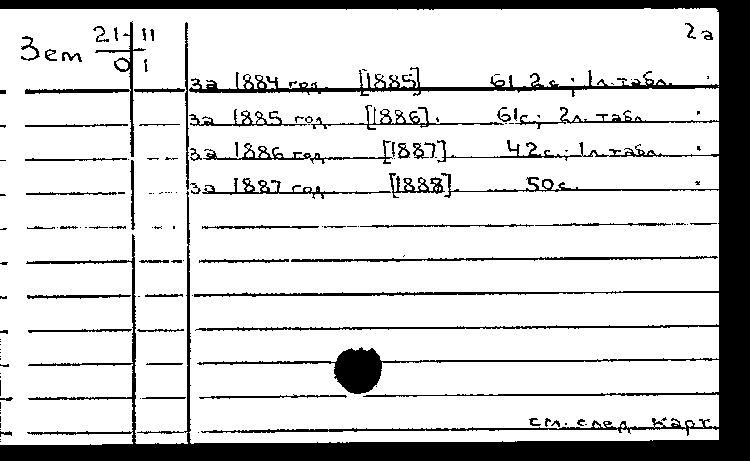 2а
Зем 21-11
01
за 1884 год. [1885] 61, 2с.; 1л. табл.
за 1885 год [1886]. 61с.; 2л. табл.
за 1886 год [1887]. 42с.; 1л. табл.
за 1887 год [1888]. 50с.
см. след. карт.